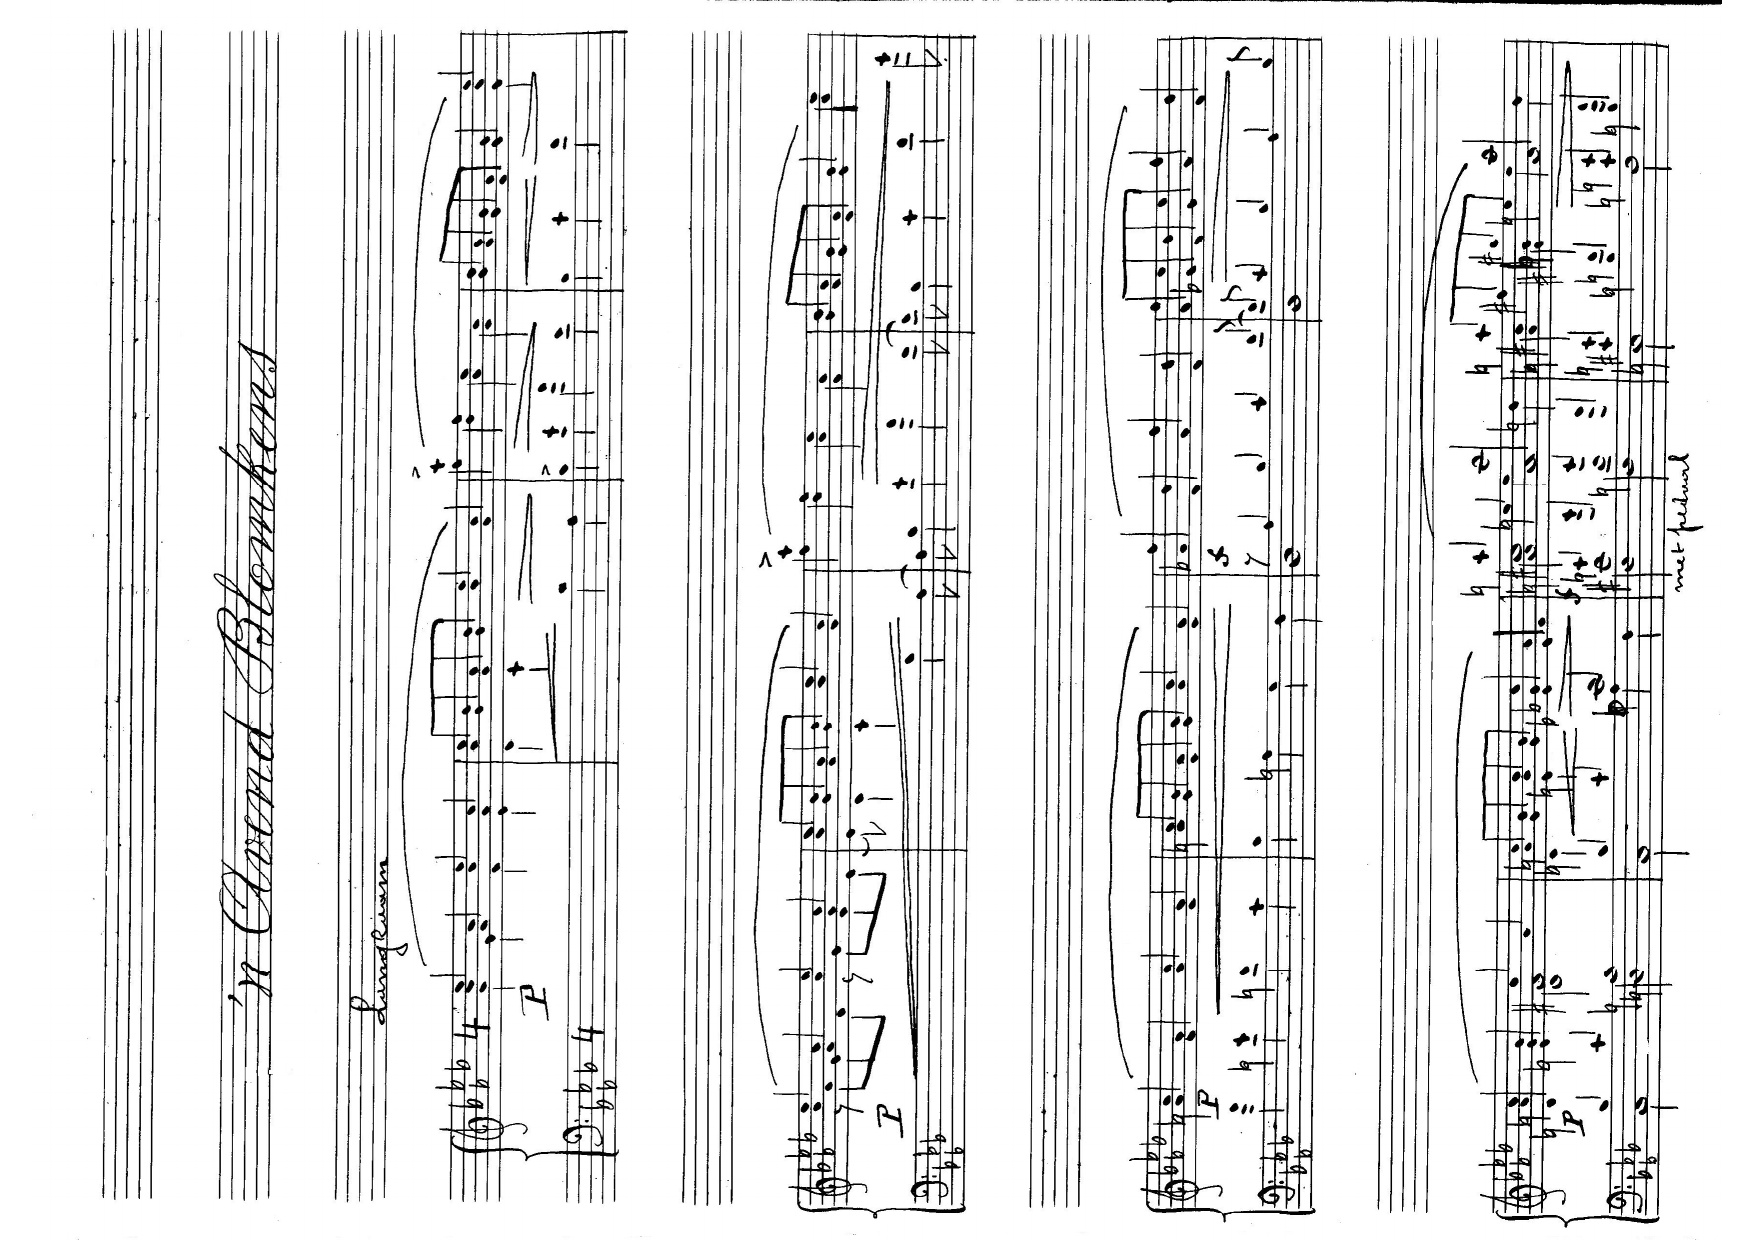 'n Avond Blomkens
Langzaam
4
4
P
P
P
P
met pedaal